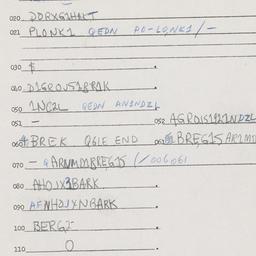 020 DORXGIHNT
021 PLONK1 QEDN PO-LONK1/-
030 $
040 D1GROU518R1K
050 1NC2L QEDN AN1NDZL
051 - 052 AGRO1S1R11NDZL
060 BREK QG1E END 061 BREG15 AR1MM
070 - QARNMMBREG15 (/006061
080 AHO1X1BARK
090 AFNHOJXNBARK
100 BERGJ-
110 O